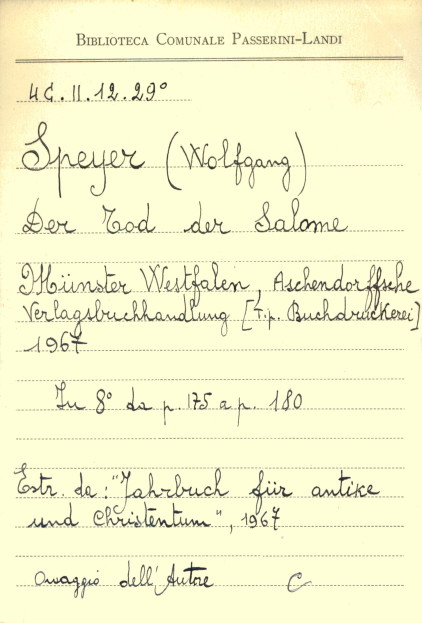 BIBLIOTECA COMUNALE PASSERINI-LANDI
4C.II.12.29°
Speyer (Wolfgang)
Der Tod der Salome
Münster Westfalen, Aschendorffsche
Verlagsbuchhandlung [T.p. Buchdruckerei]
1967
In 8° da p. 175 a p. 180
Estr. da: "Jahrbuch für antike
und Christentum", 1967
Omaggio dell'Autore C